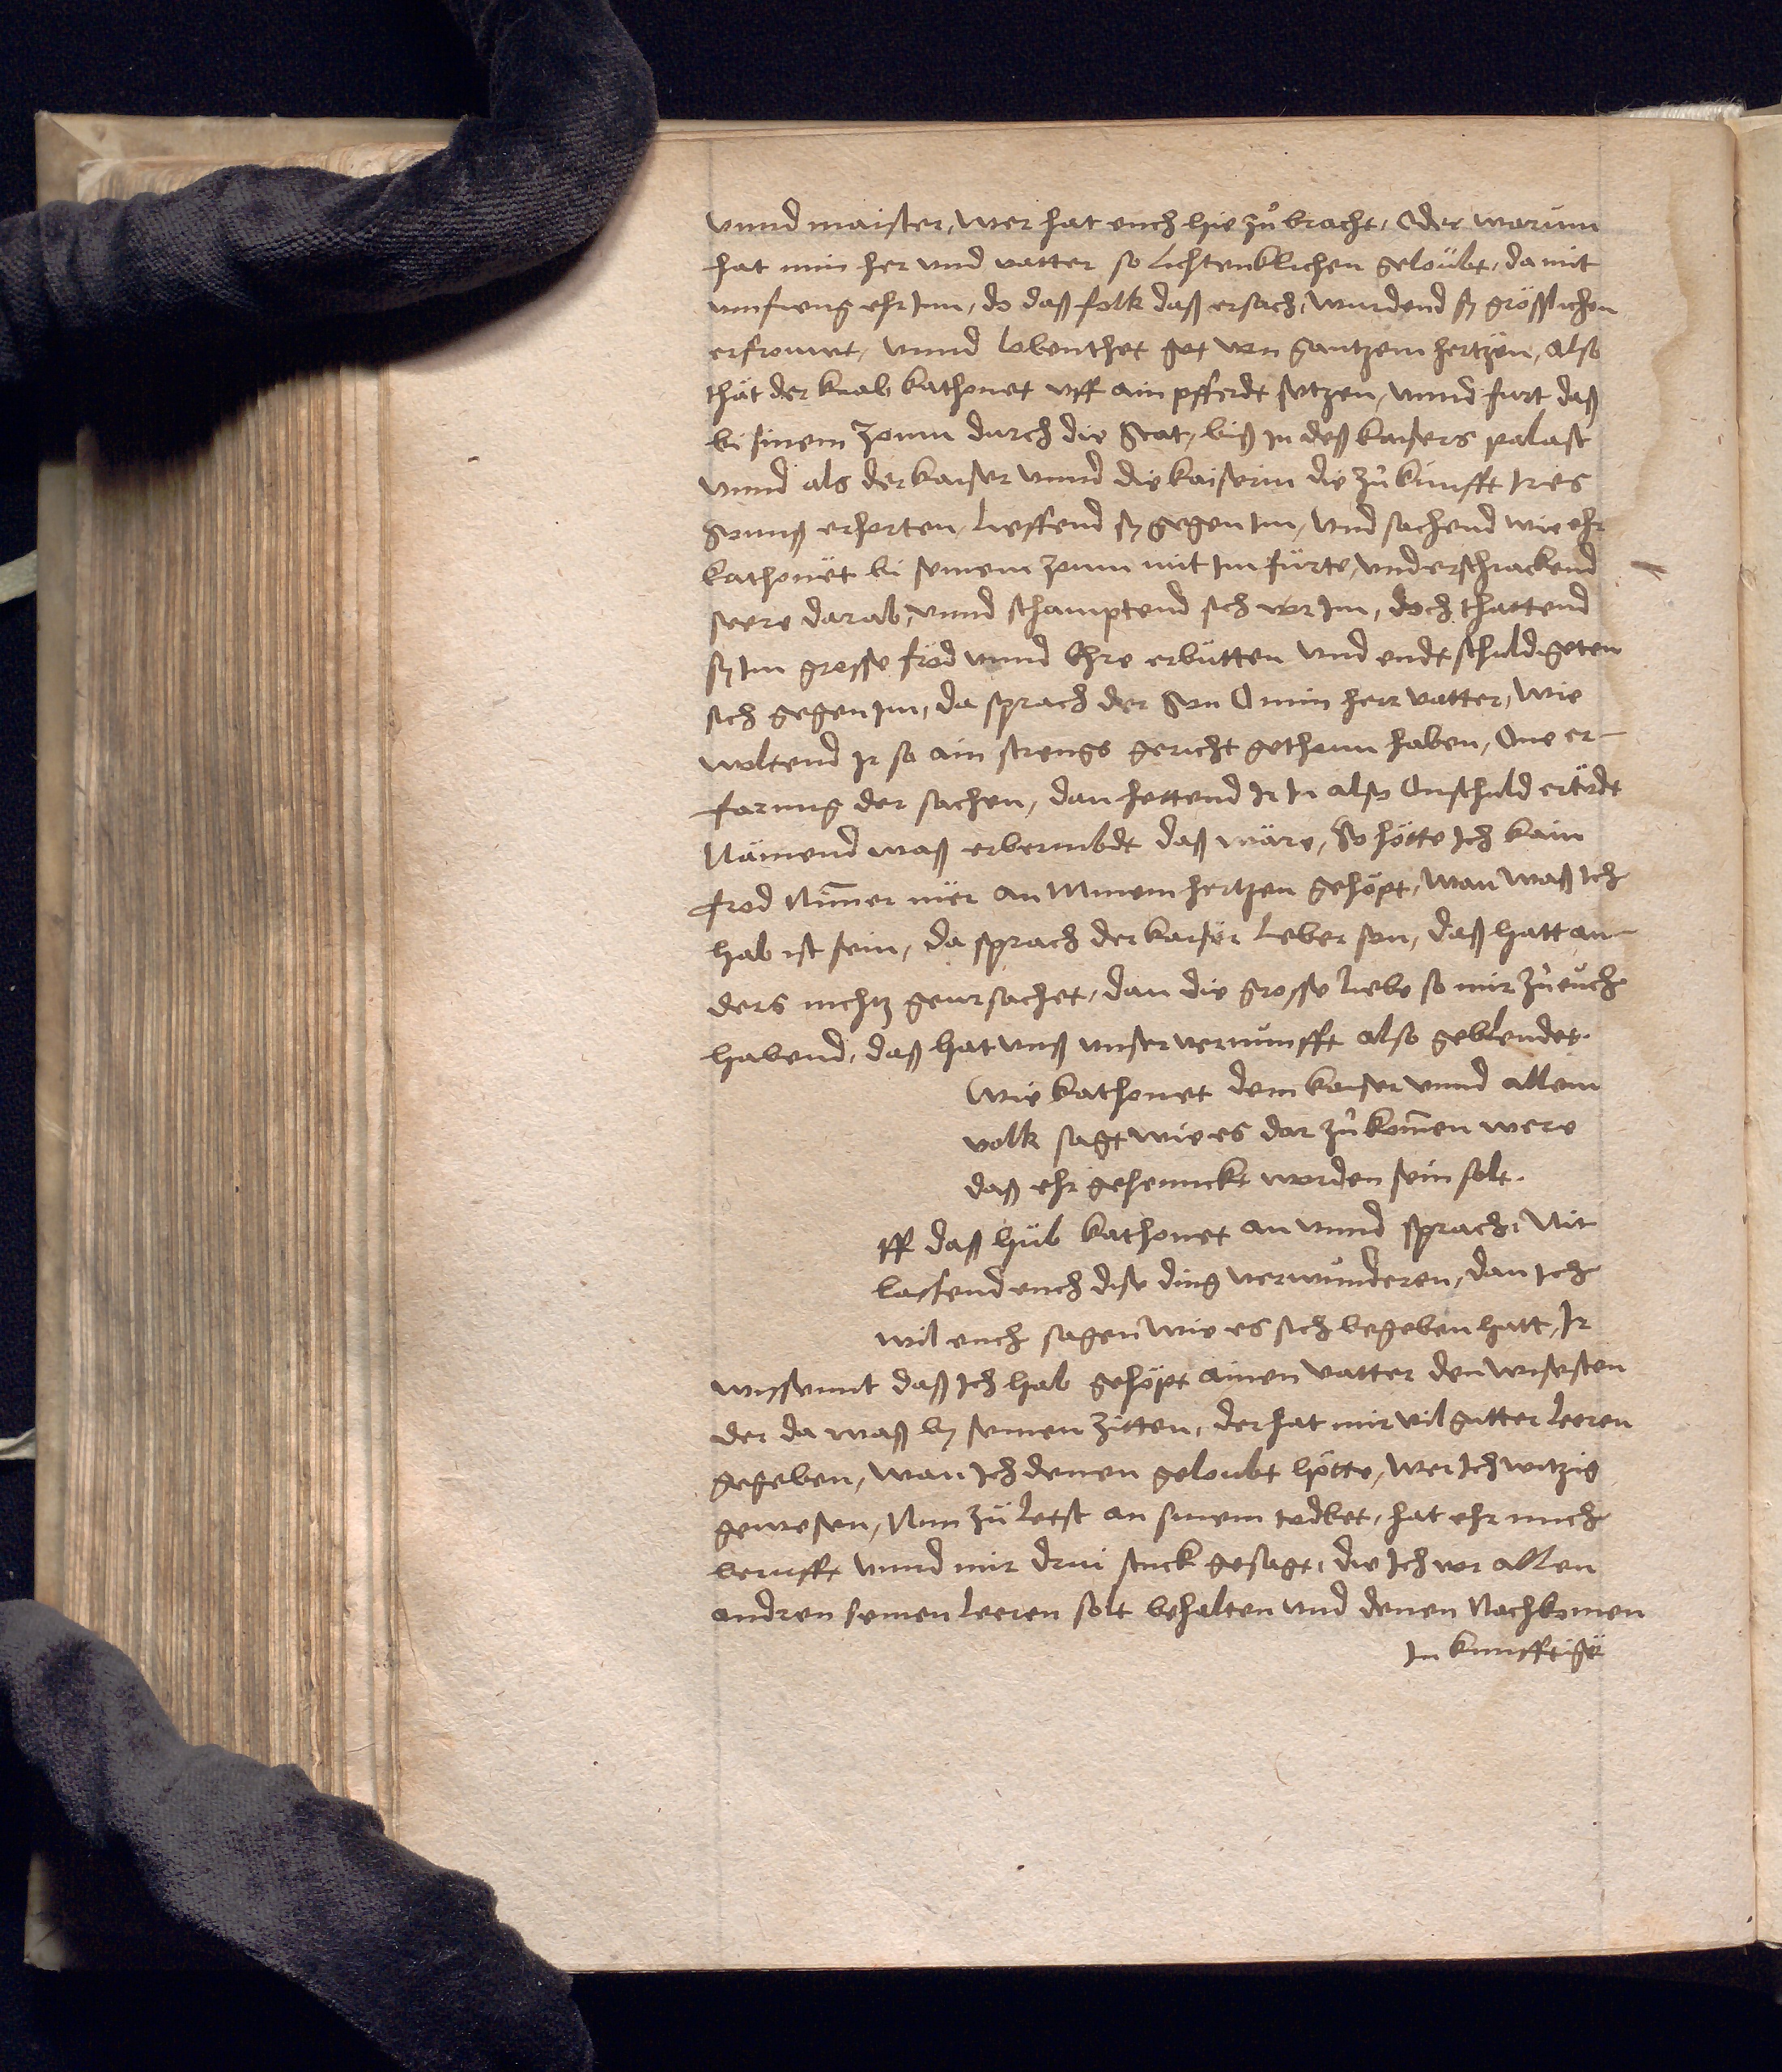 vnnd maister, wer hat euch hie zů bracht, Oder warum
hat min her vnd vatter so Lichtenklichen geloübt, damit
vmfieng ehr Inn, do daß folk daß ersach, wurdend sy grösslichen
erfrouwet, vnnd lobenthet got von gantzem hertzen, also
thät der knab kathonet vff ain pfferdt setzen, vnnd furt daß
bi sinem zoum durch die Stat, biß In deß kaisers palast
vnnd als der kaiser vnnd die kaiserin die zůkunfft Ires
Suns erhorten, lieffend sy gegen Im, vnd sachend wie ehr
kathonët bi seinem zoum mit Im fürte, vnd erschrackend
seere darab, vnnd schamptend sich vor Im, doch thattend
sy Im grosse fröd vnnd Ehre erbütten vnd endtschuldigeten
sich gegen Im, da sprach der Son O min herr vatter, wie
woltend Ir so ain strengs gericht gethonn haben, One er-
farung der sachen, dan hettend Ir In also Onschuld ertödt
Nämend waß erbermbdt daß wäre, So hötte Ich kain
frod Nimer mër an Minem hertzen gehöpt, wan waß Ich
hab ist sein, da sprach der kaisër Lieber son, daß hatt an-
ders nichtz geursachet, dan die grosse liebe so mir zů eüch
habend, daß hat vnß vnser vernunfft also geblendet.
Wie kathonet dem kaiser vnnd allem
volk sagt wie es dar zů komen were
daß ehr gehennckt worden sein solt.
ff daß hůb kathonet an vnnd sprach, Nit
lassend euch dise ding verwunderen, dan Ich
wil euch sagen wie es sich begeben hatt, Ir
wissennt daß Ich hab gehöpt ainen vatter den wisesten
der da waß by seinen zitten, der hat mir vil gutter leeren
gegeben, wan Ich denen geloubt hötte, wer Ich witzig
gewesen, Nun zů letst an sinem todbet, hat ehr mich
berufft vnnd mir drui stuck gesagt, die Ich vor allen
andren seinen leeren solt behalten vnd denen Nachkomen
In kunfftigë